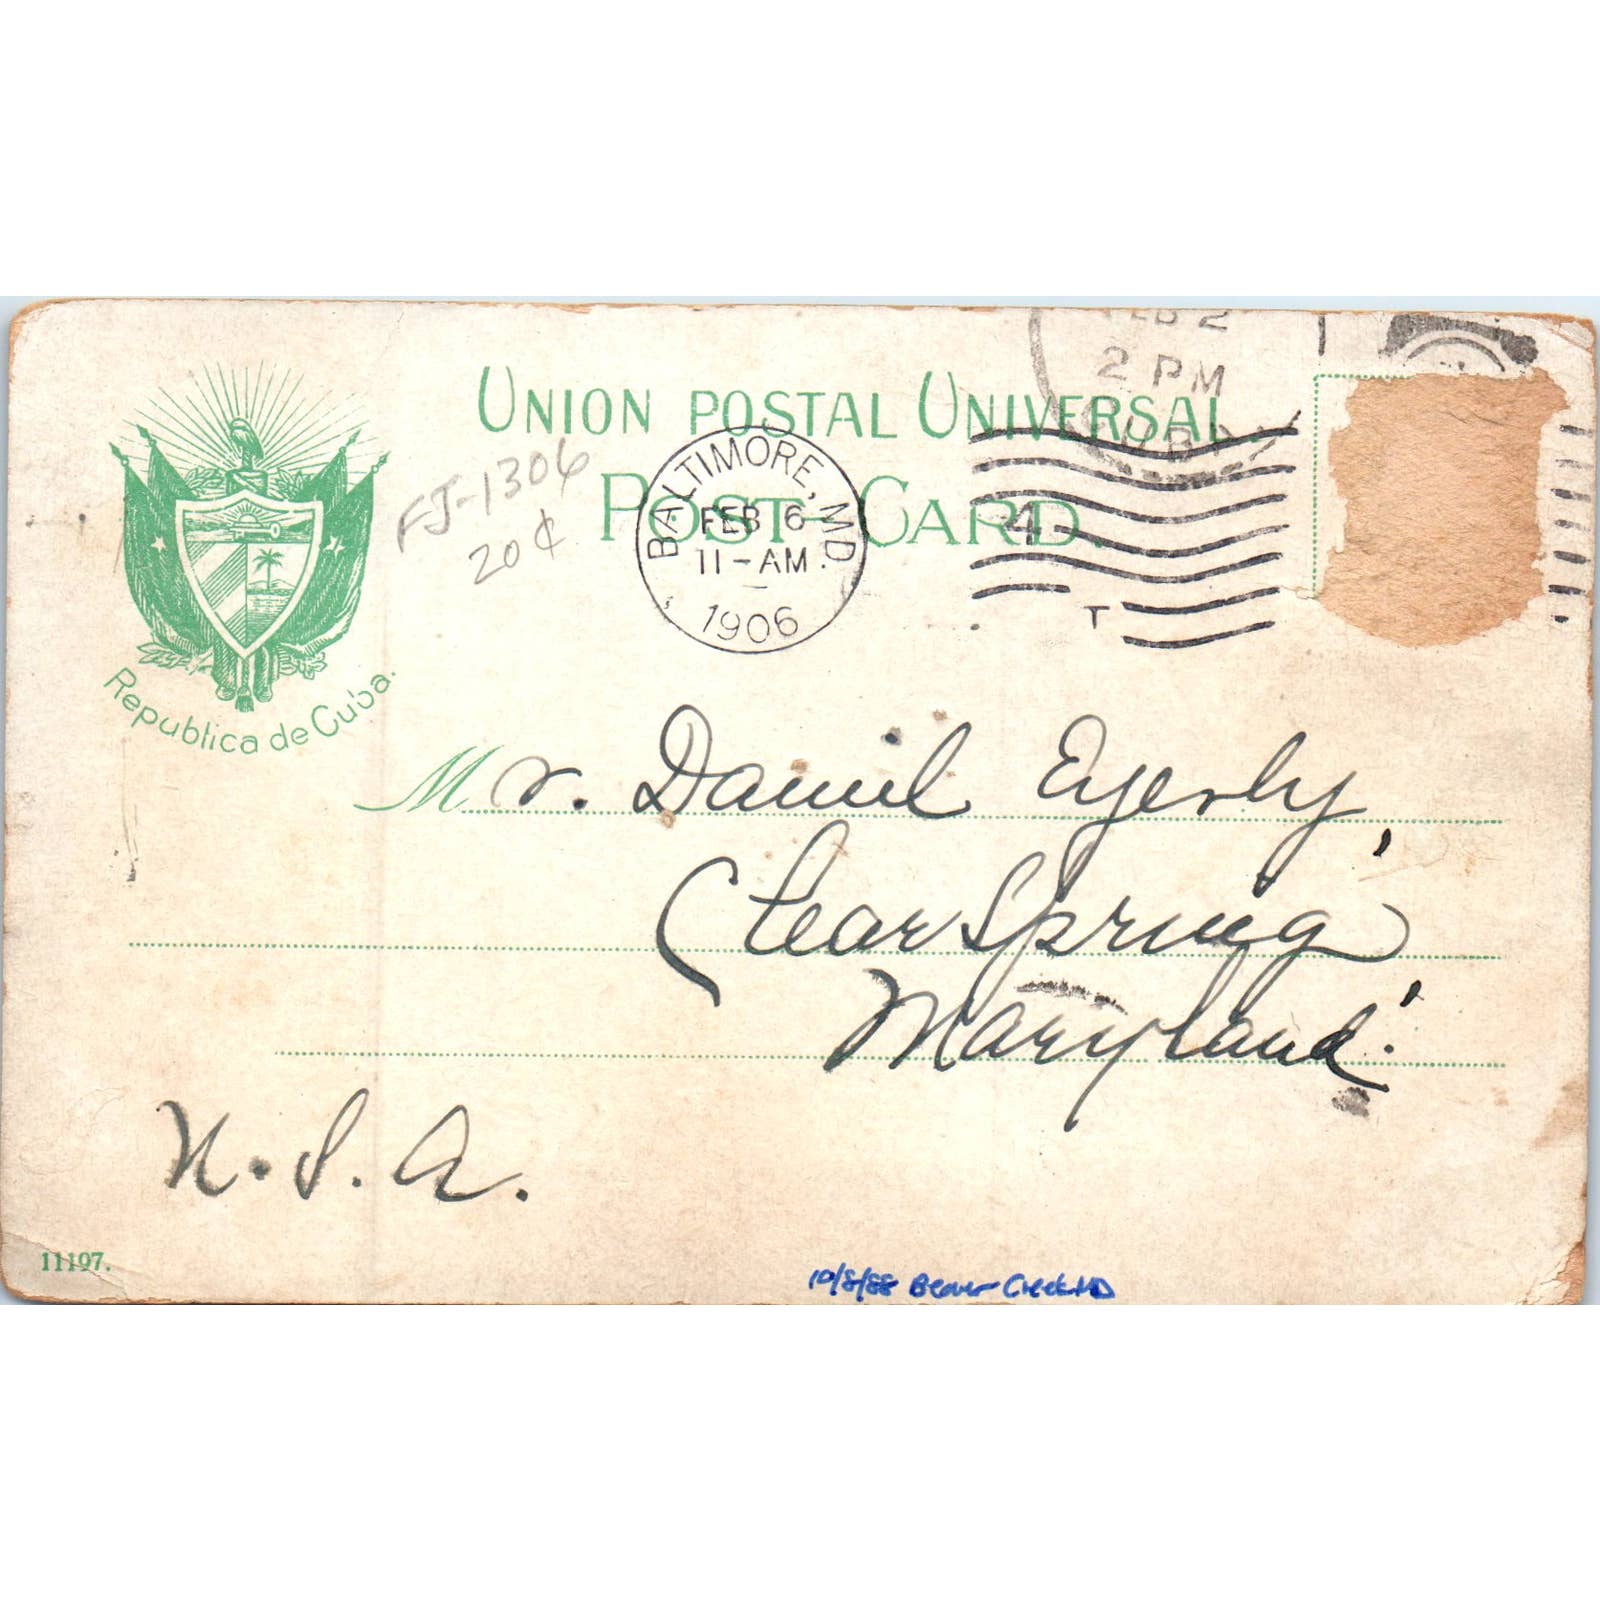 FEB 2
2 PM
UNION POSTAL UNIVERSAL.
POST CARD.
FJ-1306
20¢
BALTIMORE, MD.
FEB 6
11-AM
1906
4
T
Republica de Cuba.
Mr. Daniel Eyerly,
Clear Spring,
Maryland.
U.S.A.
11197.
10/8/88 Beaver Creek MD